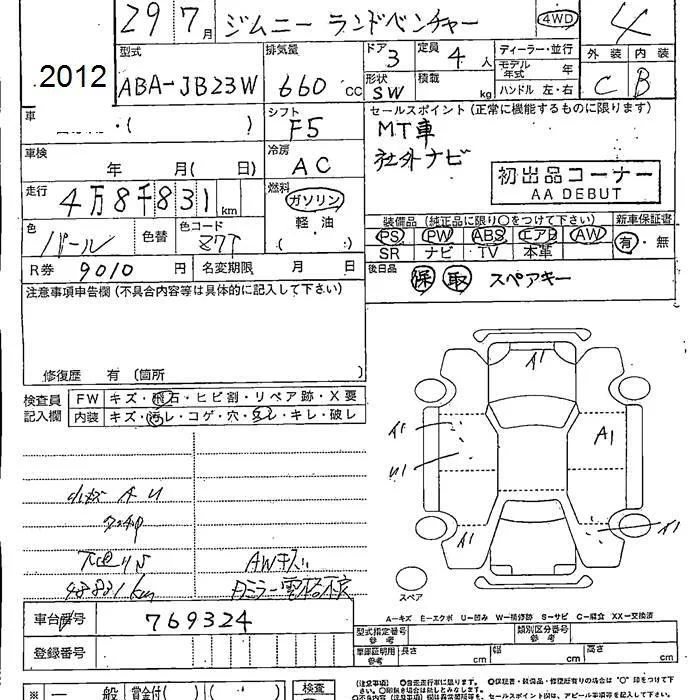 29 7月 ジムニー ランドベンチャー 4WD 4
型式 排気量 ドア 3 定員 4人 ディーラー・並行 外装 内装
2012 ABA-JB23W 660 CC 形状 SW 積載 kg モデル年式 年 C B
ハンドル 左・右
車 ・( ) シフト F5 セールスポイント(正常に機能するものに限ります)
MT車
社外ナビ
車検 年 月( 日) 冷房 AC
初出品コーナー
AA DEBUT
走行 4万8千831 km 燃料 ガソリン
軽・油
( )
装備品(純正品に限り○をつけて下さい) 新車保証書
PS PW ABS エアB AW 有・無
SR ナビ TV 本革
色 パール 色替 色コード Z7T
R券 9010 円 名変期限 月 日
後日品 保 取 スペアキー
注意事項申告欄(不具合内容等は具体的に記入して下さい)
修復歴 有(箇所 )
検査員記入欄 FW キズ・飛石・ヒビ割・リペア跡・X要
内装 キズ・汚レ・コゲ・穴・スレ・キレ・破レ
イ1
イ1
U1
A1
イ1
イ1
小キズ A U
下回りS
AWキズ
48831km
Dミラー電格不良
スペア
A=キズ E=エクボ U=凹み W=補修跡 S=サビ C=腐食 XX=交換済
車台番号 769324
登録番号
型式指定番号 参考 類別区分番号 参考
車庫証明用 参考 長さ cm 幅 cm 高さ cm
※ 一般 賞金付( ) ( ) 検査